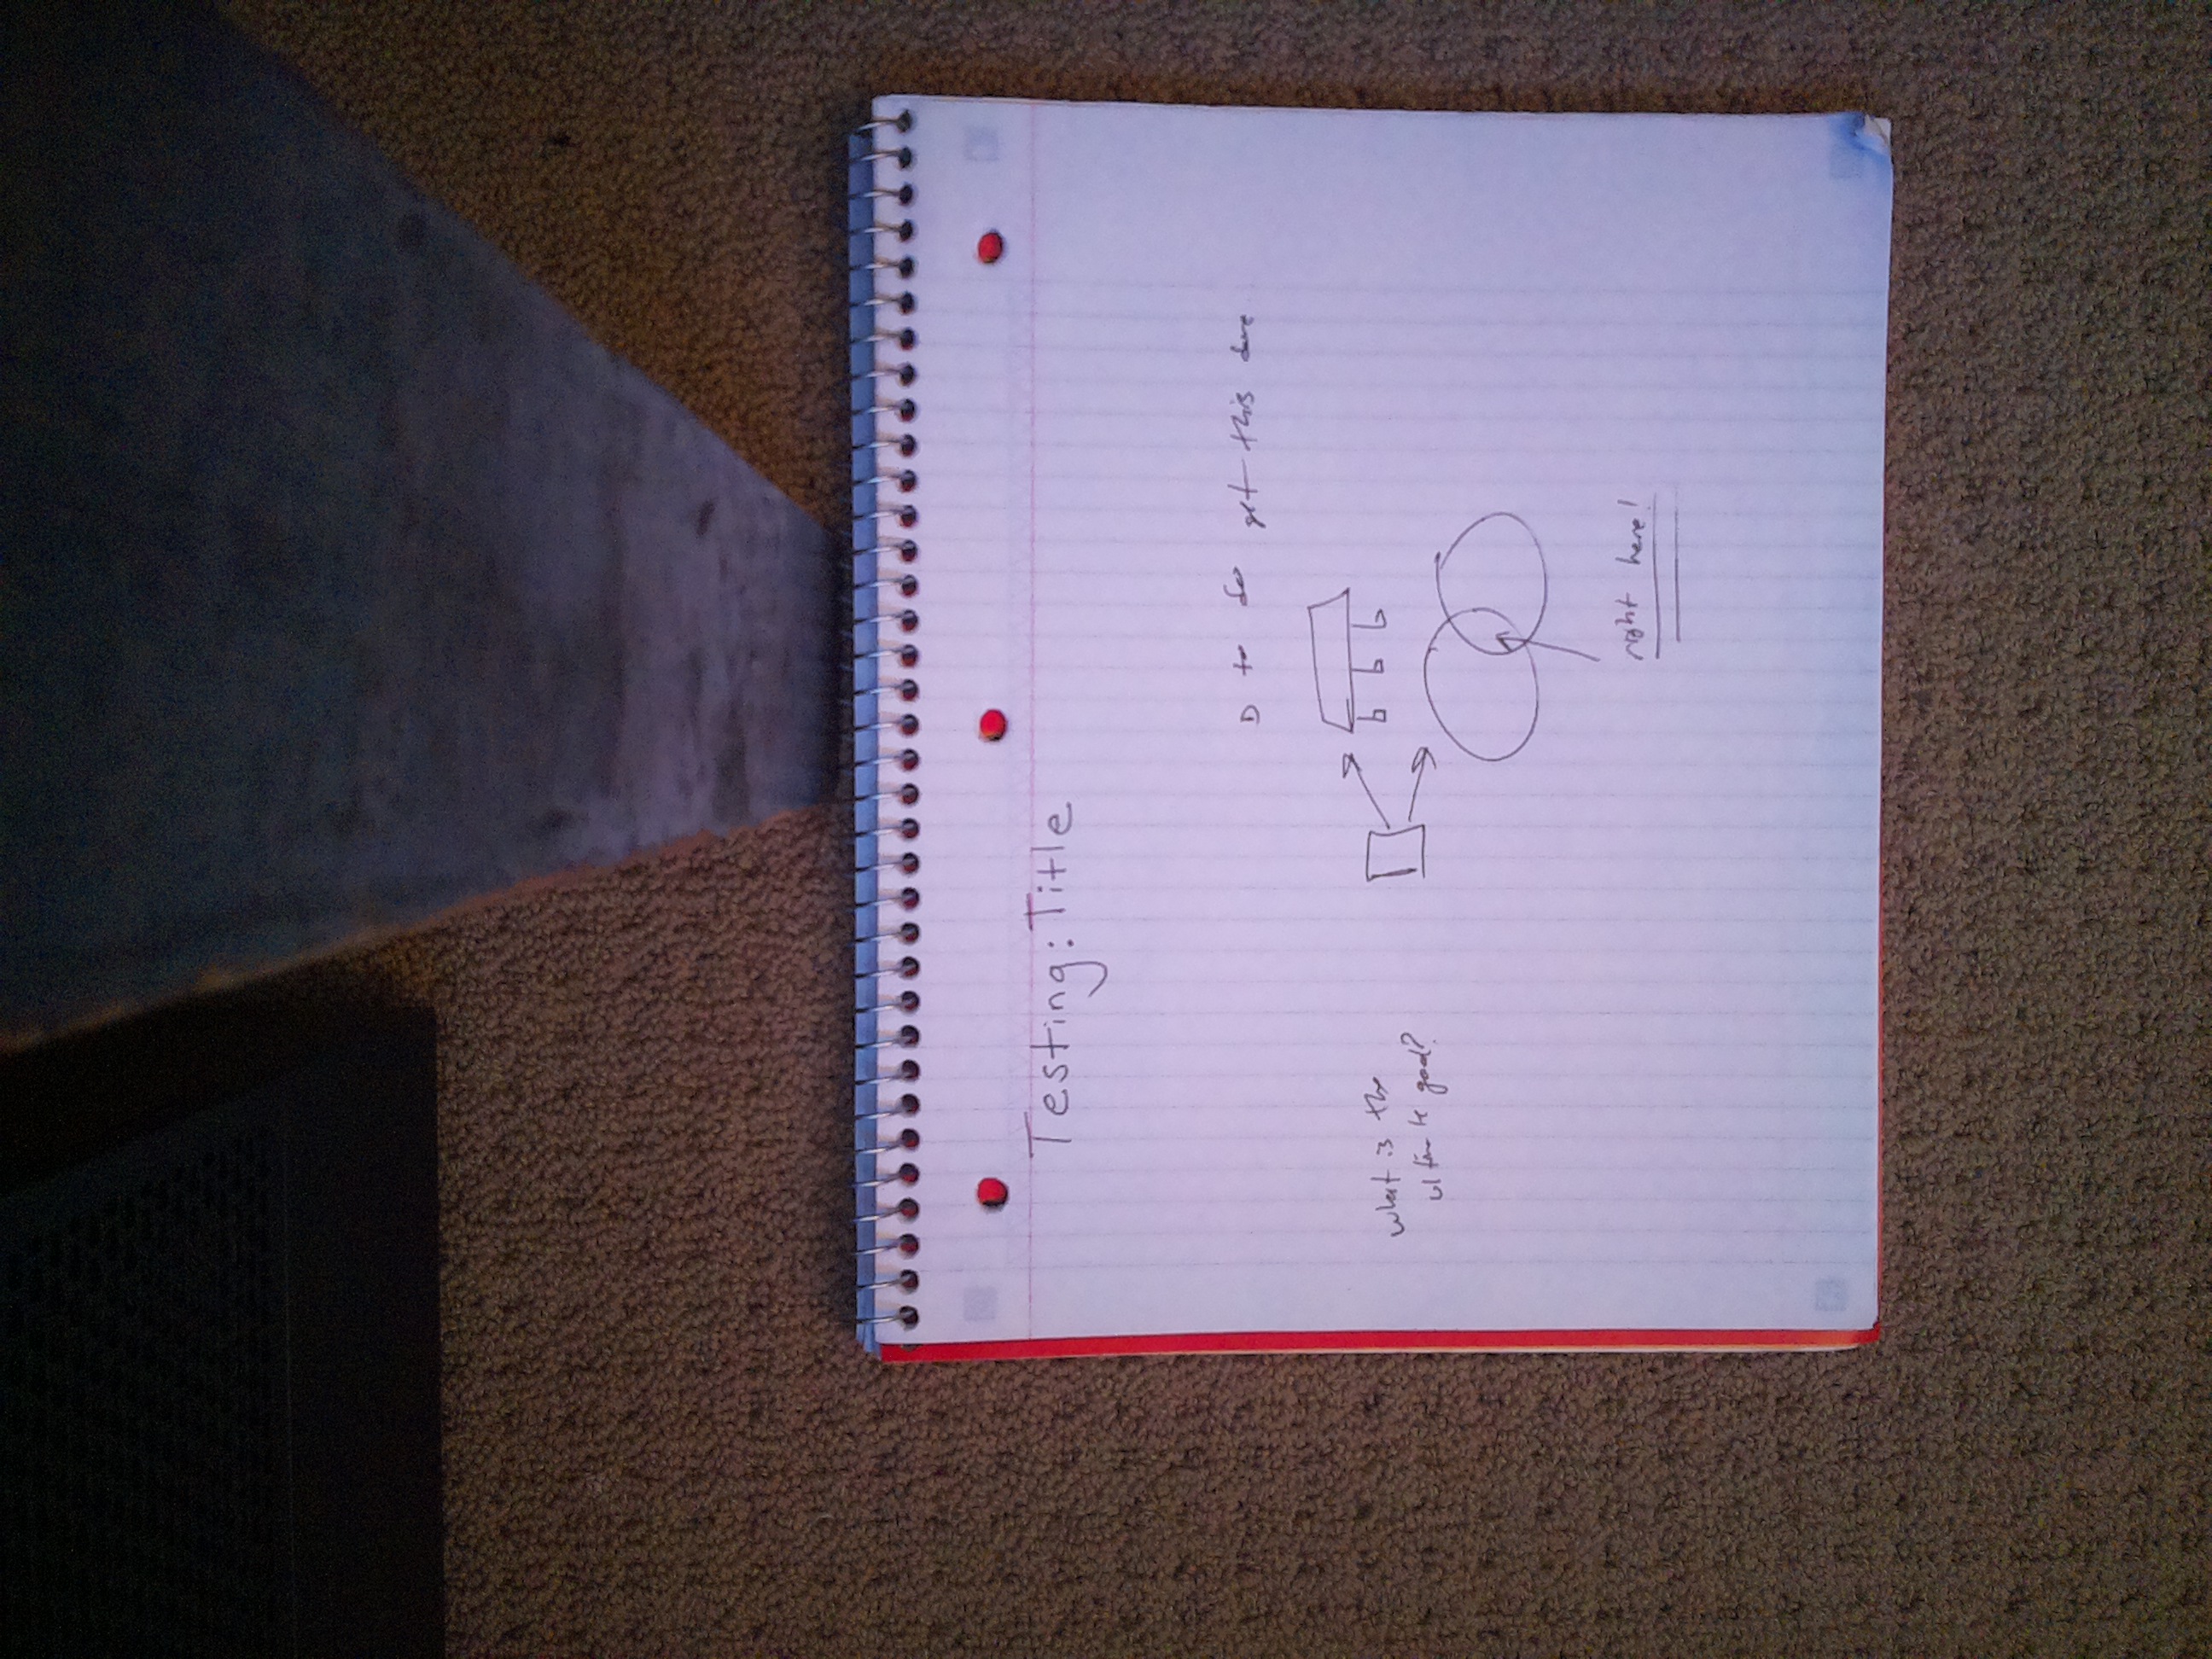 Testing: Title
to do get this done
what is the
ultimate goal?
right here!